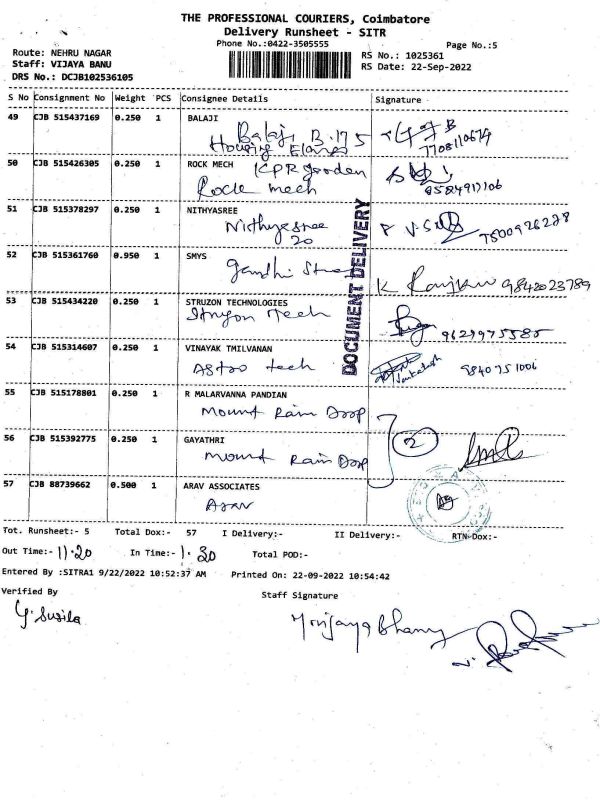 THE PROFESSIONAL COURIERS, Coimbatore
Delivery Runsheet - SITR
Phone No.:0422-3505555
Page No.:5
Route: NEHRU NAGAR
Staff: VIJAYA BANU
DRS No.: DCJB102536105
RS No.: 1025361
RS Date: 22-Sep-2022
S No Consignment No Weight PCS Consignee Details Signature
49 CJB 515437169 0.250 1 BALAJI
Balaji B.17 5
Housing
7708110674
50 CJB 515426305 0.250 1 ROCK MECH
KPR garden
Rock mech
8584917106
51 CJB 515378297 0.250 1 NITHYASREE
Nithyasree
20
7500926228
52 CJB 515361760 0.950 1 SMYS
Gandhi
K
9842023789
53 CJB 515434220 0.250 1 STRUZON TECHNOLOGIES
Tech
9629975585
54 CJB 515314607 0.250 1 VINAYAK TMILVANAN
Astro tech
9840751006
55 CJB 515178801 0.250 1 R MALARVANNA PANDIAN
Mount Rain Drop
56 CJB 515392775 0.250 1 GAYATHRI
Mount Rain Drop
2
57 CJB 88739662 0.500 1 ARAV ASSOCIATES
DOCUMENT DELIVERY
Tot. Runsheet:- 5 Total Dox:- 57 I Delivery:- II Delivery:- RTN-Dox:-
Out Time:- 11.20 In Time:- 1.30 Total POD:-
Entered By :SITRA1 9/22/2022 10:52:37 AM Printed On: 22-09-2022 10:54:42
Verified By Staff Signature
Y. Susila